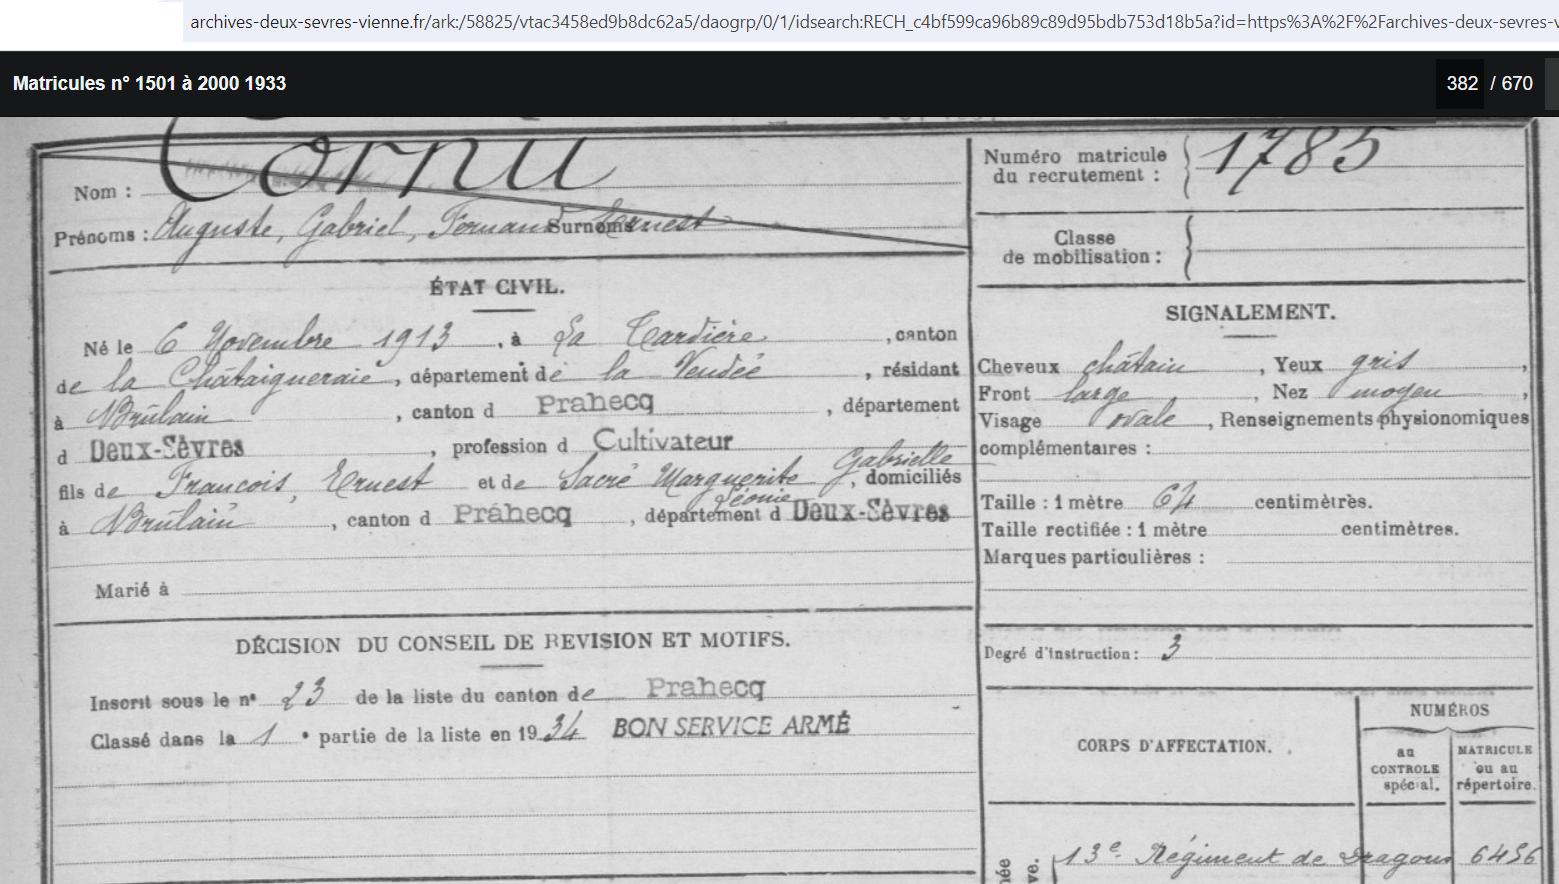 archives-deux-sevres-vienne.fr/ark:/58825/vtac3458ed9b8dc62a5/daogrp/0/1/idsearch:RECH_c4bf599ca96b89c89d95bdb753d18b5a?id=https%3A%2F%2Farchives-deux-sevres-v
Matricules n° 1501 à 2000 1933
382 / 670
Nom : Cornu
Prénoms : Auguste, Gabriel, Fernand Surnoms Ernest
Numéro matricule
du recrutement : 1785
Classe
de mobilisation :
ÉTAT CIVIL.
Né le 6 Novembre 1913, à La Tardière, canton
de la Châtaigneraie, département de la Vendée, résidant
à Brûlain, canton d Prahecq, département
d Deux-Sèvres, profession d Cultivateur
Gabrielle
fils de François, Ernest et de Sacré Marguerite, domiciliés
Léonie
à Brûlain, canton d Prahecq, département d Deux-Sèvres
Marié à
SIGNALEMENT.
Cheveux châtain, Yeux gris,
Front large, Nez moyen,
Visage ovale, Renseignements physionomiques
complémentaires :
Taille : 1 mètre 64 centimètres.
Taille rectifiée : 1 mètre centimètres.
Marques particulières :
Degré d'instruction : 3
DÉCISION DU CONSEIL DE REVISION ET MOTIFS.
Inscrit sous le n° 23 de la liste du canton de Prahecq
Classé dans la 1 e partie de la liste en 1934 BON SERVICE ARMÉ
CORPS D'AFFECTATION.
NUMÉROS
au
CONTROLE
spécial.
MATRICULE
ou au
répertoire.
13e Régiment de Dragons 6456